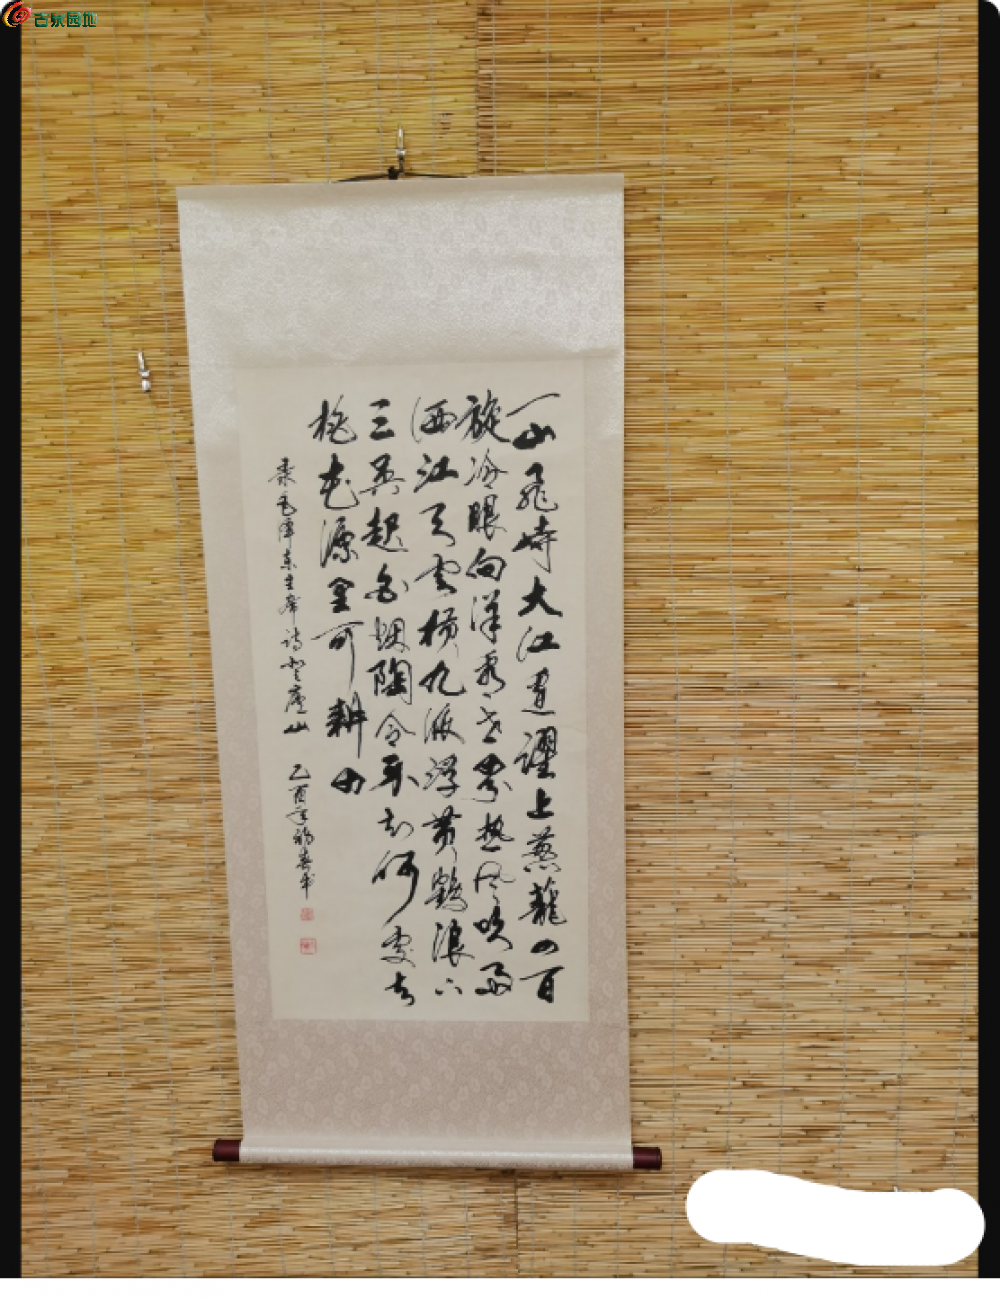 古泉园地
一山飛峙大江邊躍上葱蘢四百
旋冷眼向洋看世界热风吹雨
洒江天雲横九派浮黄鶴浪下
三吴起白烟陶令不知何處去
桃花源里可耕田
录毛澤东主席诗登廬山 乙酉年